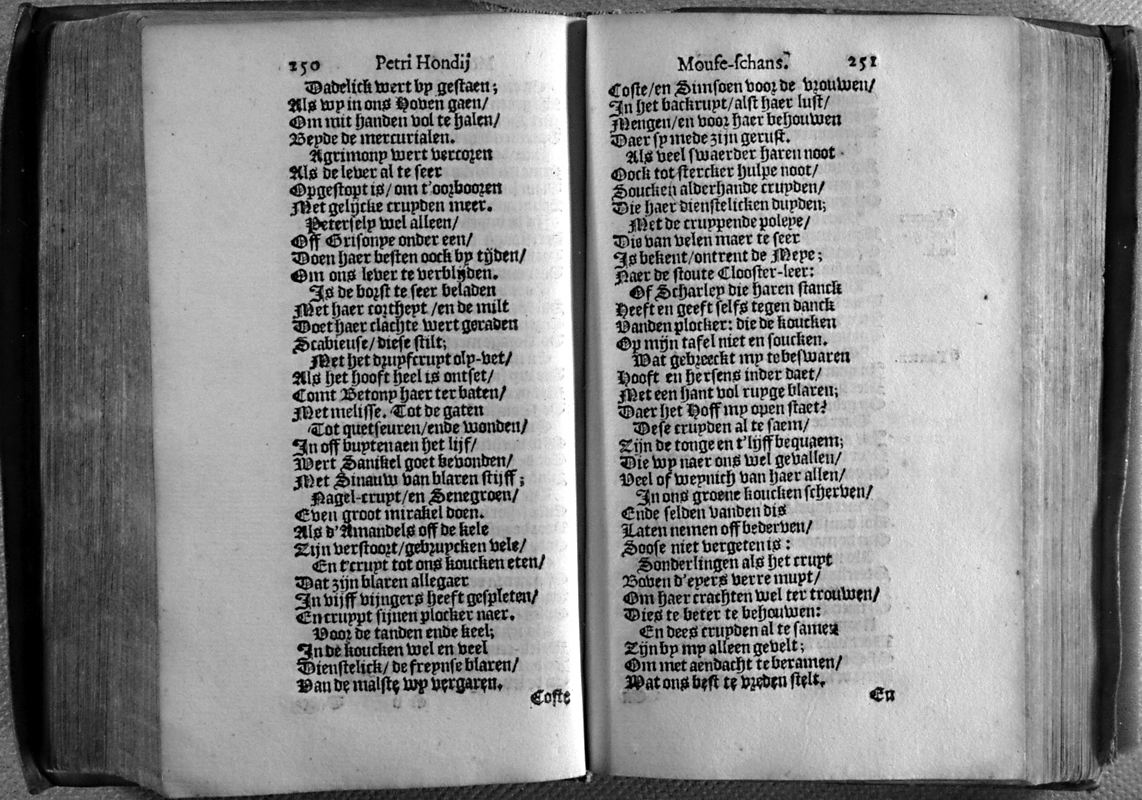 250 Petri Hondij
Dadelick wert by gestaen;
Als wy in ons Hoven gaen/
Om mit handen vol te halen/
Beyde de mercurialen.
Agrimony wert vercoren
Als de lever al te seer
Opgestopt is/ om t'oorbooren
Met gelijcke cruyden meer.
Petersely wel alleen/
Off Grisonye onder een/
Doen haer besten oock by tijden/
Om ons lever te verblijden.
Is de borst te seer beladen
Met haer cortheyt/en de milt
Doet haer clachte wert geraden
Scabieuse/ diese stilt;
Met het druyfcruyt oly-vet/
Als het hooft heel is ontset/
Comt Betony haer ter baten/
Met melisse. Tot de gaten
Tot quetseuren/ende wonden/
In off buytenaen het lijf/
Wert Sanikel goet bevonden/
Met Sinauw van blaren stijff;
Nagel-cruyt/en Senegroen/
Even groot mirakel doen.
Als d'Amandels off de kele
Zijn verstoort/gebruycken vele/
En t'cruyt tot ons koucken eten/
Dat zijn blaren allegaer
In vijff vijngers heeft gespleten/
En cruypt sijnen plocker naer.
Voor de tanden ende keel;
In de koucken wel en veel
Dienstelick/ de freynse blaren/
Van de malste wy vergaren.
Coste
Mouse-schans. 251
Coste/en Simsoen voor de vrouwen/
In het backruyt/alst haer lust/
Mengen/en voor haer behouwen
Daer sy mede zijn gerust.
Als veel swaerder haren noot
Oock tot stercker hulpe noot/
Soucken alderhande cruyden/
Die haer dienstelicken duyden;
Met de cruypende poleye/
Die van velen maer te seer
Is bekent/ontrent de Meye;
Naer de stoute Clooster-leer:
Of Scharley die haren stanck
Heeft en geeft selfs tegen danck
Vanden plocker: die de koucken
Op mijn tafel niet en soucken.
Wat gebreeckt my te beswaren
Hooft en hersens inder daet/
Met een hant vol ruyge blaren;
Daer het Hoff my open staet?
Dese cruyden al te saem/
Zijn de tonge en t'lijff bequaem;
Die wy naer ons wel gevallen/
Veel of weynich van haer allen/
In ons groene koucken scherven/
Ende selden vanden dis
Laten nemen off bederven/
Soose niet vergeten is:
Sonderlingen als het cruyt
Boven d'eyers verre muyt/
Om haer crachten wel ter trouwen/
Dies te beter te behouwen:
En dees cruyden al te samen
Zijn by my alleen gevelt;
Om met aendacht te beramen/
Wat ons best te vreden stelt.
En